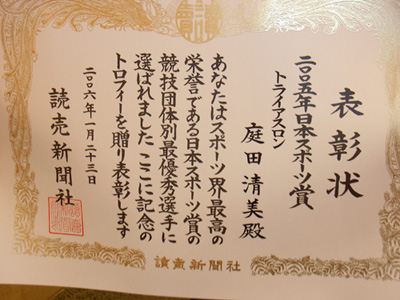 表彰状
二〇〇五年日本スポーツ賞
トライアスロン
庭田清美殿
あなたはスポーツ界最高の
栄誉である日本スポーツ賞の
競技団体別最優秀選手に
選ばれました ここに記念の
トロフィーを贈り表彰します
二〇〇六年一月二十三日
読売新聞社
讀賣新聞社